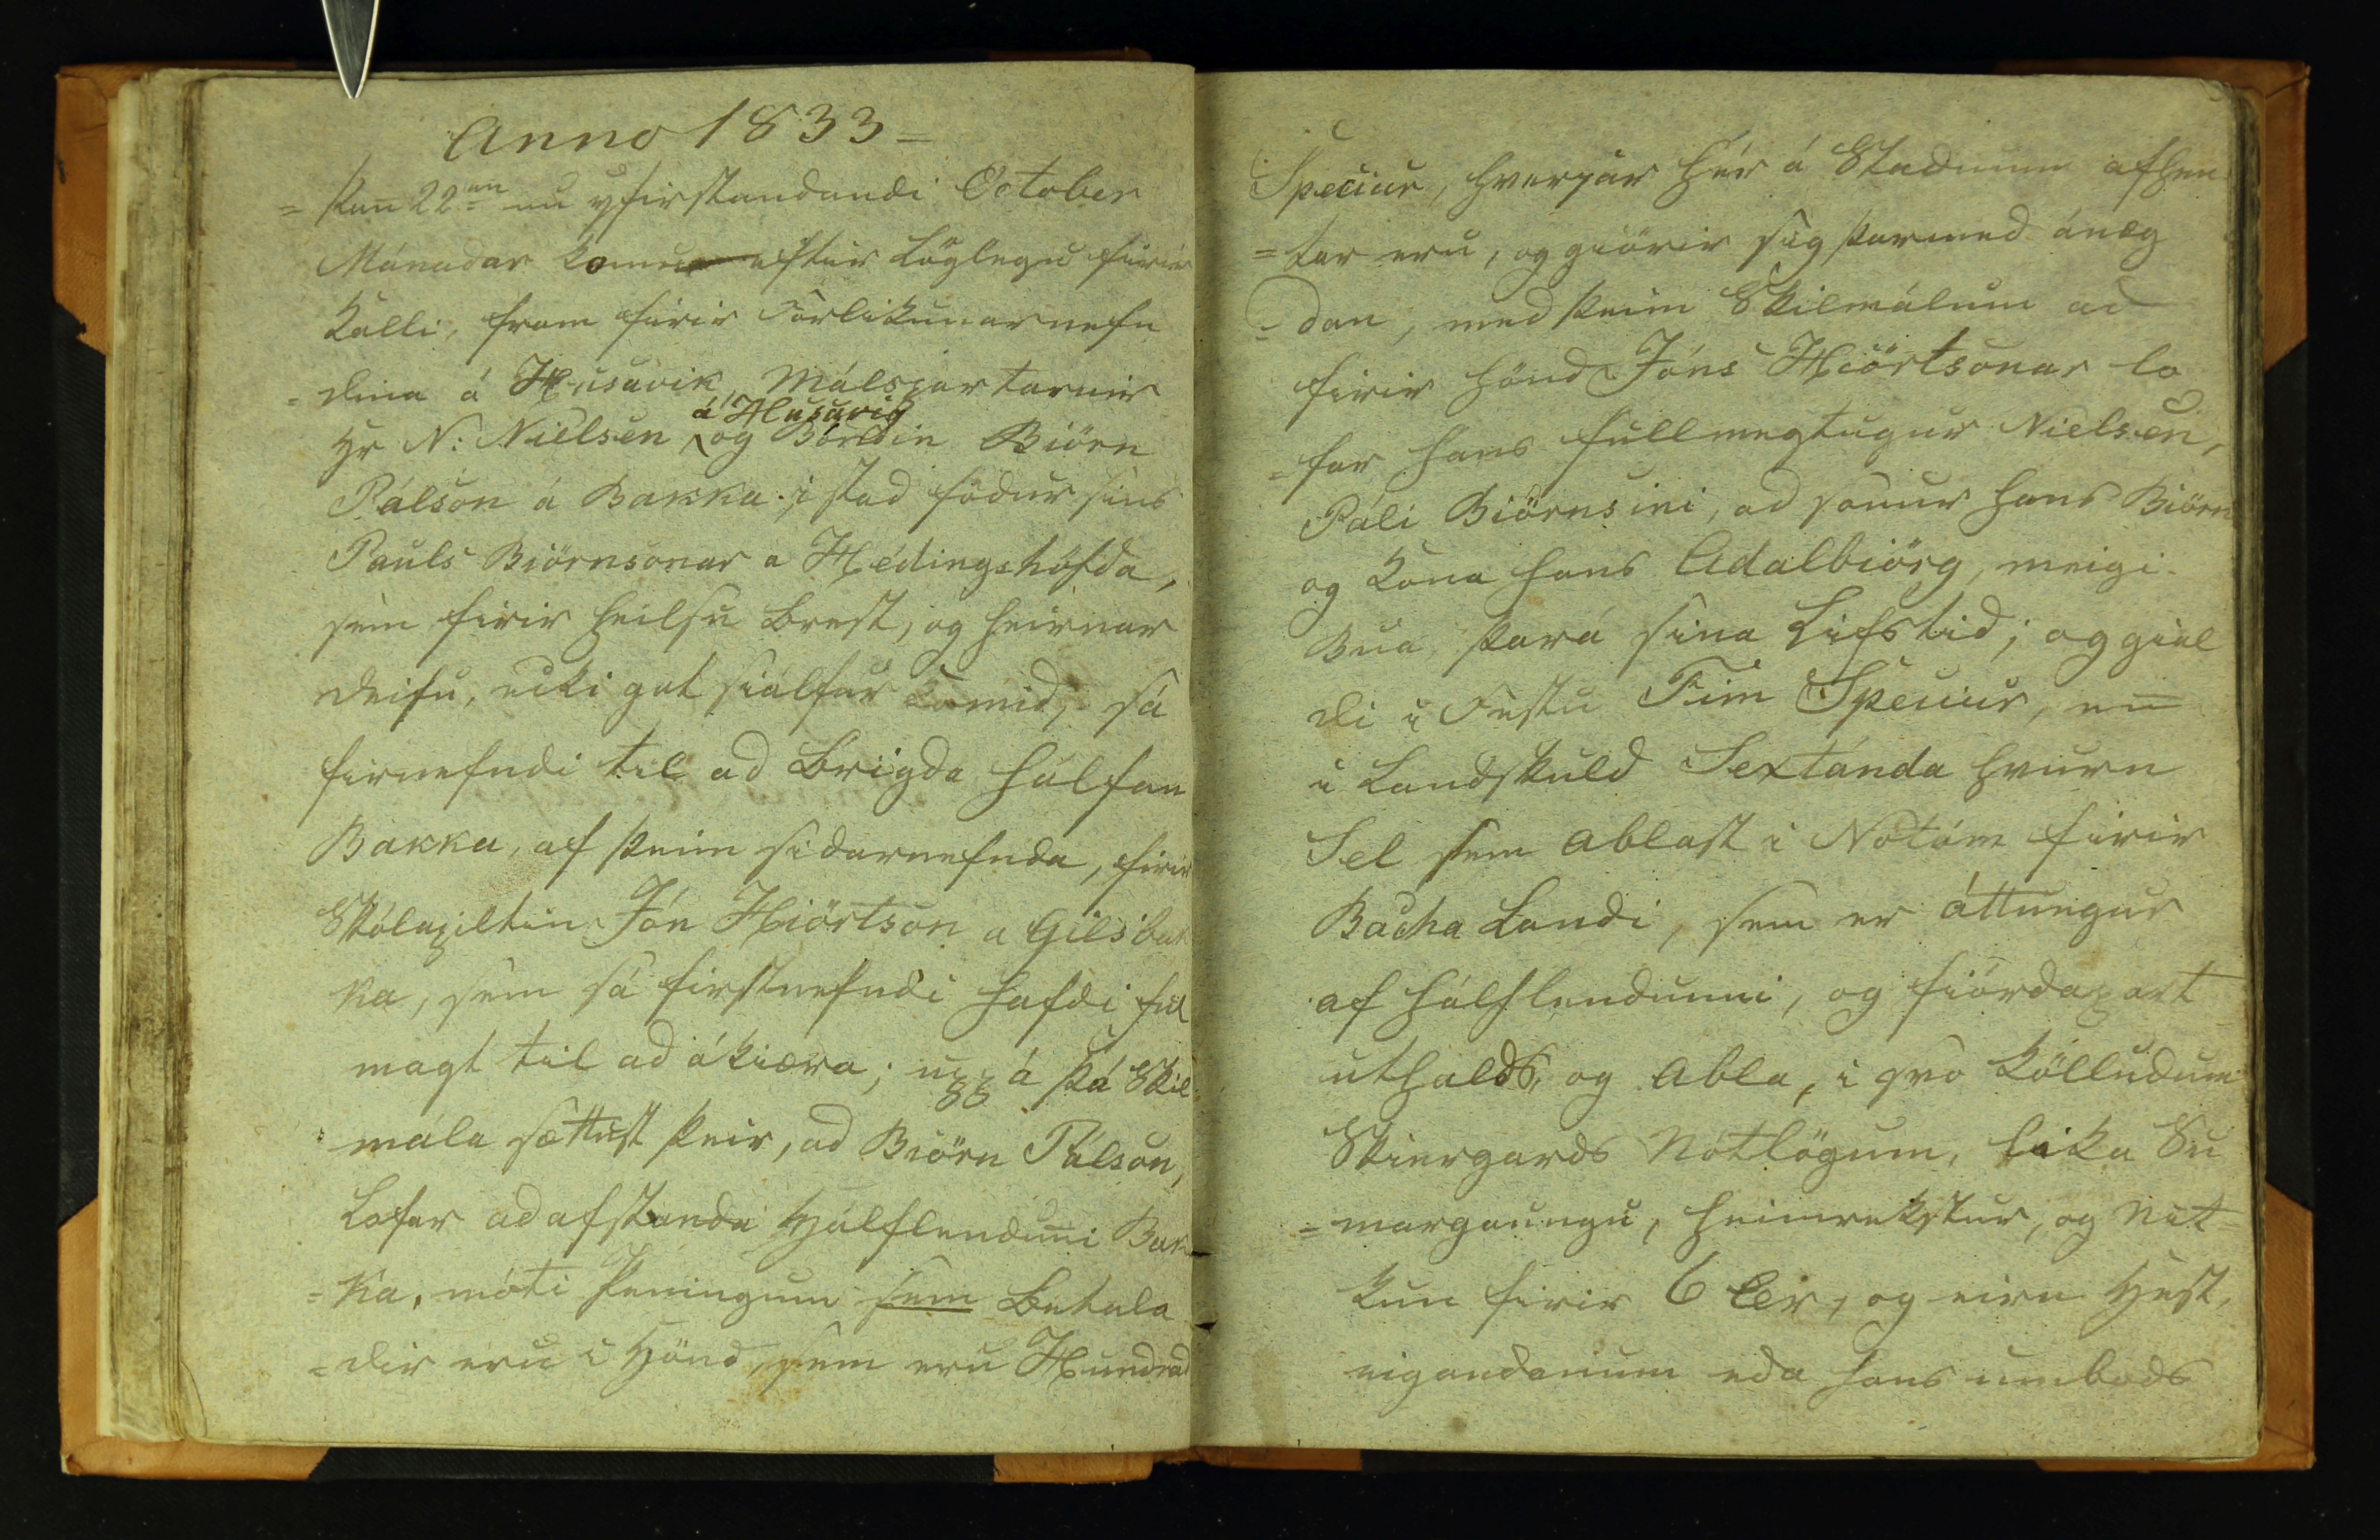 Anno 1833 =
= Þan 22an nú yfirstandandi October
Mánadar komu eftir Löglegu firir
Kalli, fram firir Forlikunarnefn
= dina á Husavik, Málspartarnir
á Husavig
Hr N: Nielsen og Bóndin Biörn
Pálsón á Bakka i stad födur sins
Pauls Biörnsonar a Hédingshöfda,
sem firir heilsu brest, og heirnar
deifu, ecki gat siálfur komid, sá
firnefndi til ad brigda hálfan
Bakka, af þeim sidarnefnda, firir
Skólapiltin Jón Hiörtson a Gilsbak
ka, sem sá firstnefndi hafdi ful
magt til ad ákiæra; uppá þá Skil
mála sættust þeir, ad Biörn Pálsón,
Lofar ad afstanda Hálflenduni Bak
= ka, móti Peningum sem betala
= dir eru i Hönd, sem eru Hundrad
Speciur, hverjar hér á Stadnum afhen
= tar eru, og giörir sig þarmed ánæg
= dan, med þeim Skilmálum ad
firir hönd Jóns Hiörtsonar lo
= far hans fullmegtugur Nielsen,
Páli Biörnsini, ad sonur hans Biörn
og Kona hans Adalbiörg, meigi
Bua þará sina Lifstid; og giel
di i Festu Fim Speciur, en
i Landskuld Sextánda hvurn
Sel sem ablast i Nótum firir
Bacha Landi, sem er áttungur
af hálflendunni, og fiórdapart
uthalds, og Abla, i svo kölludum
Skiergards Nótlögum, lika Su
= margaungu, heimrekstur, og nit
kun firir 6 Ær, og eirn Hest,
eigandanum eda hans umbods